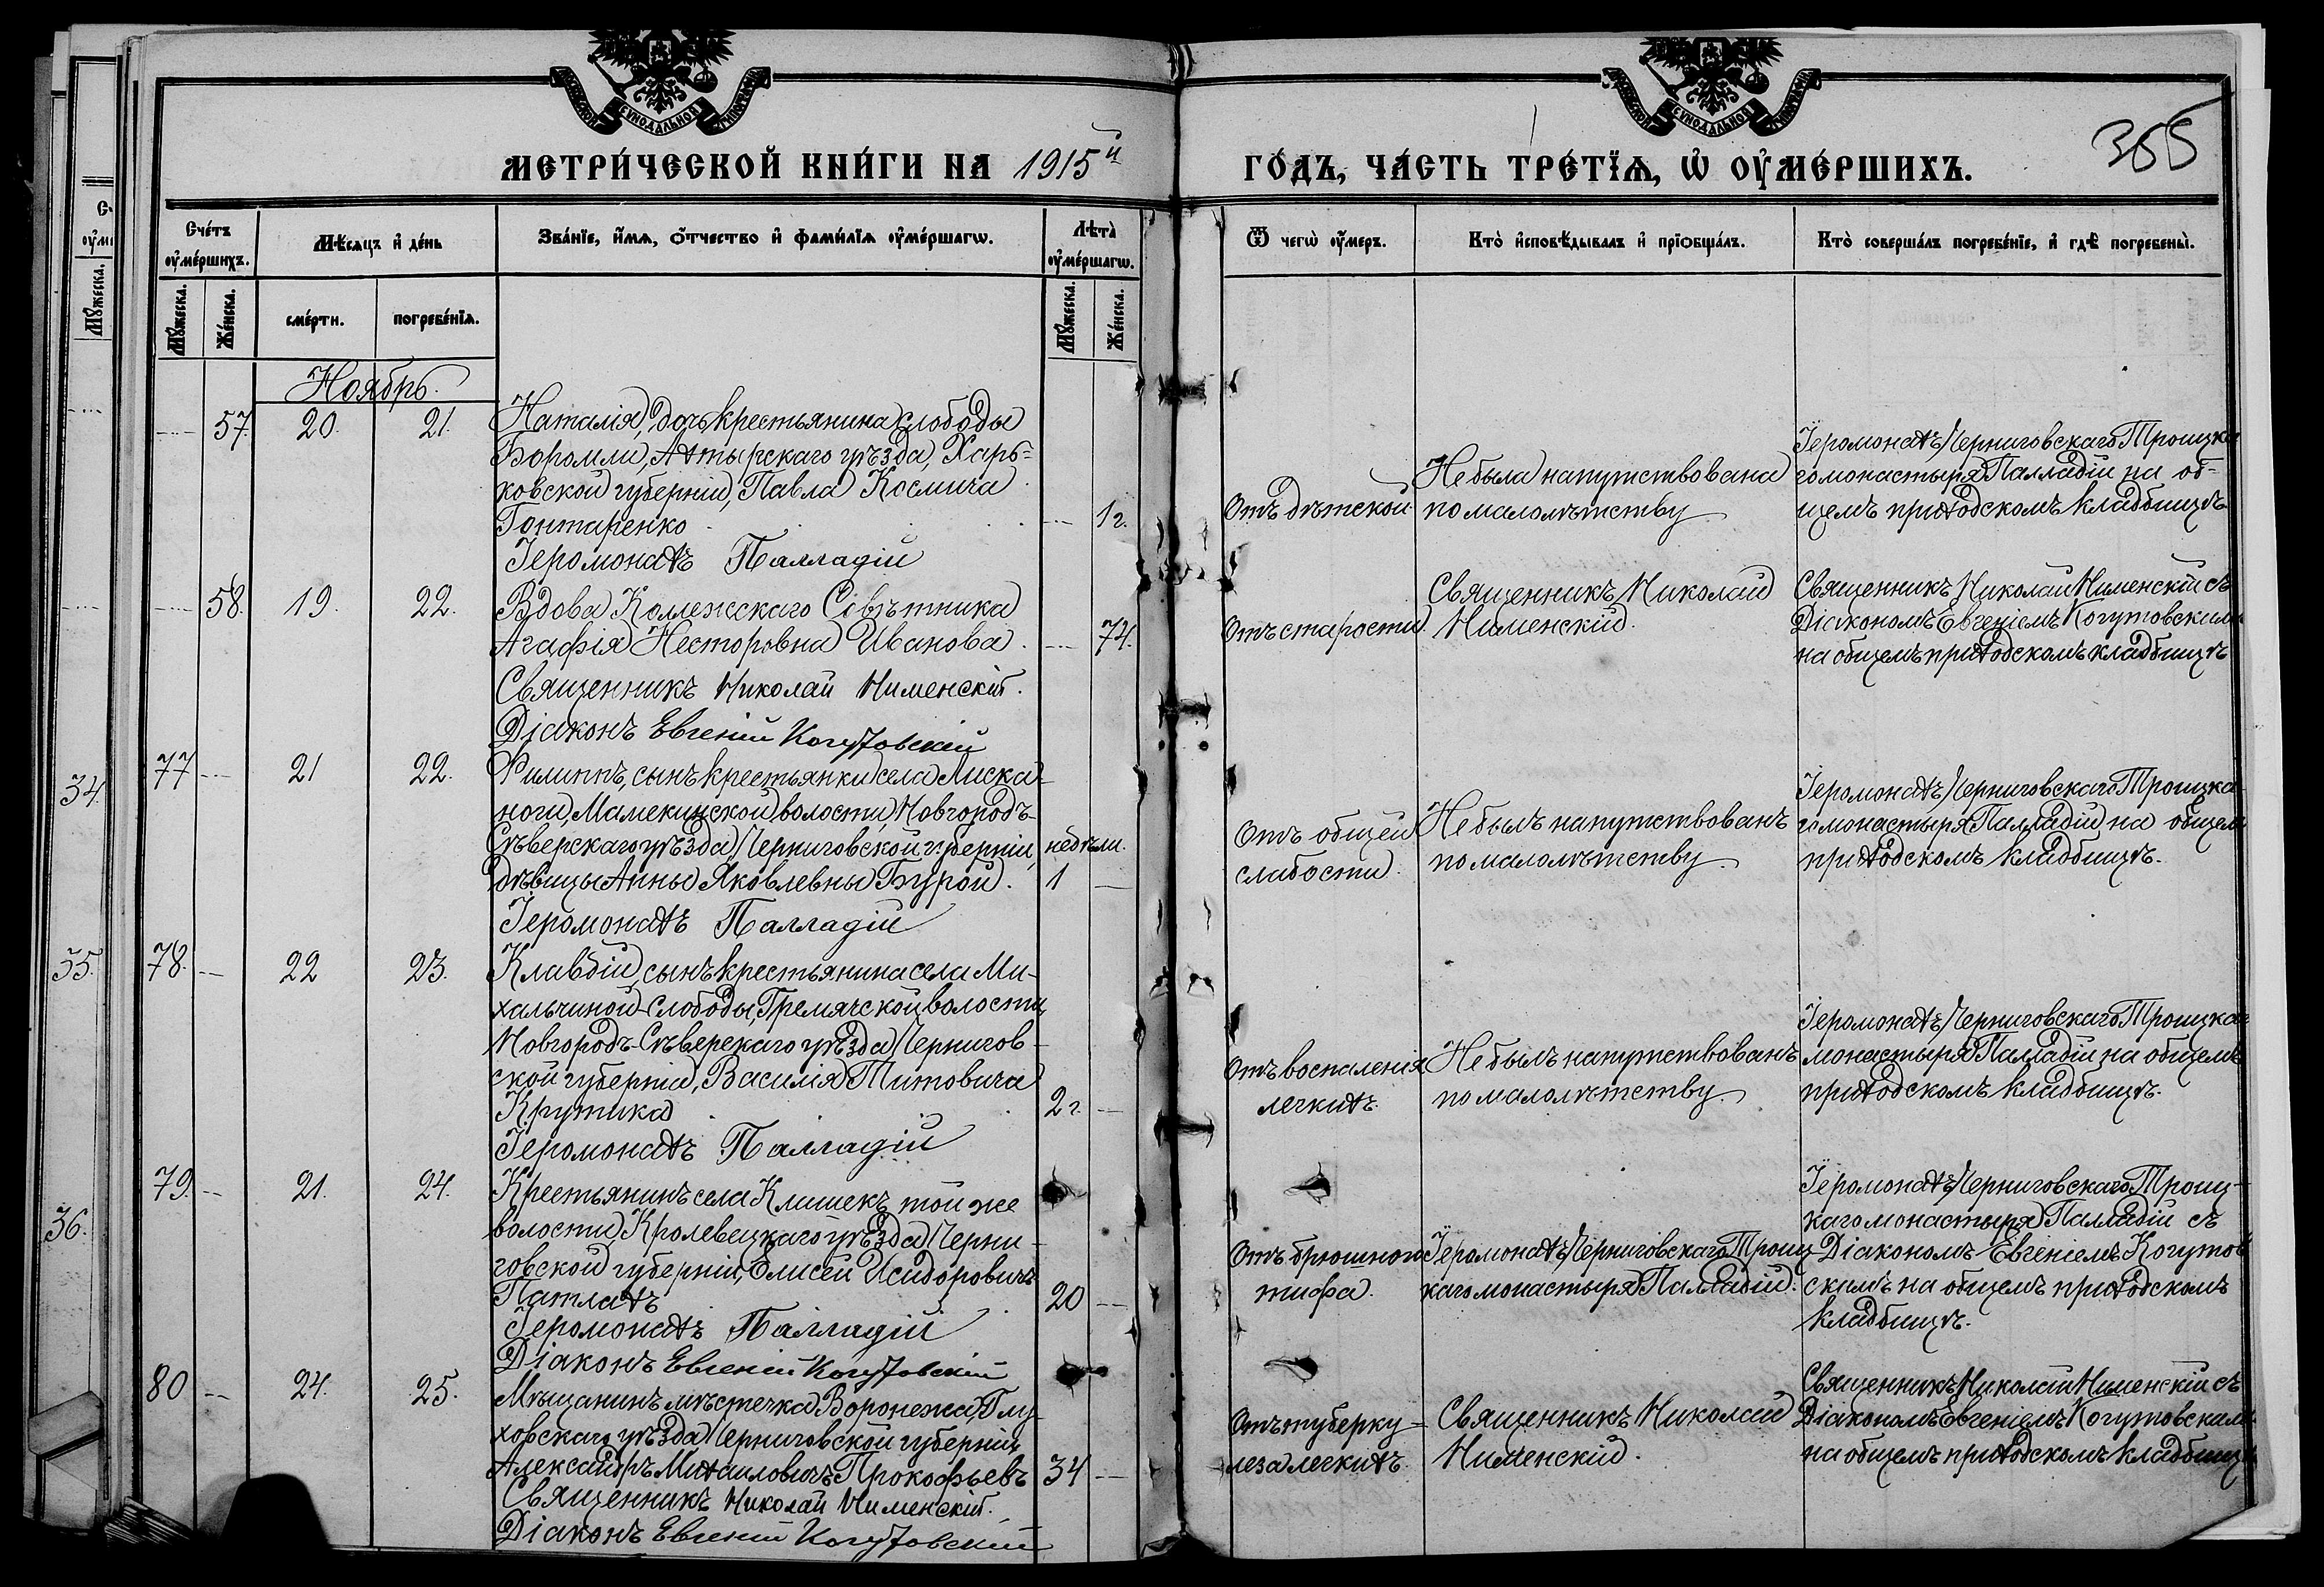 СѴНОДАЛЬНОЙ
СѴНОДАЛЬНОЙ
МЕТРИ́ЧЕСКОЙ КНИ́ГИ НА 1915й
ГО́ДЪ, ЧА́СТЬ ТРЕ́ТЇѦ, Ѡ҆ ОУ҆МЕ́РШИХЪ.
355
Сче́тъ оу҆ме́ршихъ.
Мѣ́сѧцъ и҆ де́нь
Зва́нїе, и҆́мѧ, ѻ҆́тчество и҆ фами́лїѧ оу҆ме́ршагѡ.
Лѣ́та оу҆ме́ршагѡ.
Ѿ чегѡ̀ оу҆́меръ.
Кто̀ и҆сповѣ́дывалъ и҆ прїѡбща́лъ.
Кто̀ соверша́лъ погребе́нїе, и҆ гдѣ̀ погребены̀.
Мꙋ́жеска.
Же́нска.
сме́рти.
погребе́нїѧ.
Мꙋ́жеска.
Же́нска.
Ноябрь.
57. 20. 21.
Наталія, дочь крестьянина слободы
Боромли, Ахтырскаго уѣзда, Харь=
ковской губерніи, Павла Космича
Гонтаренко
1 г.
Іеромонахъ Палладій
Отъ дѣтской
Не была напутствована
по малолѣтству
Іеромонахъ Черниговскаго Троицка
го монастыря Палладій на об-
щемъ приходскомъ кладбищѣ
58. 19. 22.
Вдова Коллежскаго Совѣтника
Агафія Несторовна Иванова.
74.
Священникъ Николай Нименскій.
Діаконъ Евгеній Когутовскій
Отъ старости.
Священникъ Николай
Нименскій.
Священникъ Николай Нименскій съ
Діакономъ Евгеніемъ Когутовскимъ
на общемъ приходскомъ кладбищѣ
77 21 22.
Филиппъ, сынъ крестьянки села Лиска-
ноги, Мамекинской волости, Новгородъ-
Сѣверскаго уѣзда Черниговской губерніи,
дѣвицы Анны Яковлевны Бурой.
недѣли.
1
Іеромонахъ Палладій
Отъ общей
слабости.
Не былъ напутствованъ
по малолѣтству
Іеромонахъ Черниговскаго Троицка
го монастыря Палладій на общемъ
приходскомъ кладбищѣ.
78. 22 23.
Клавдій, сынъ крестьянина села Ми-
хальчиной-Слободы, Гремячской волости,
Новгородъ-Сѣверскаго уѣзда Чернигов-
ской губерніи, Василія Титовича
Крутика
2 г.
Іеромонахъ Палладій
Отъ воспаленія
легкихъ.
Не былъ напутствованъ
по малолѣтству.
Іеромонахъ Черниговскаго Троицкаго
монастыря Палладій на общемъ
приходскомъ кладбищѣ.
79. 21. 24.
Крестьянинъ села Клишекъ, той же
волости, Кролевецкаго уѣзда Черни-
говской губерніи, Елисей Исидоровичъ
Патлахъ
20
Іеромонахъ Палладій
Діаконъ Евгеній Когутовскій
Отъ брюшного
тифа.
Іеромонахъ Черниговскаго Троиц-
каго монастыря Палладій.
Іеромонахъ Черниговскаго Троиц-
каго монастыря Палладій съ
Діакономъ Евгеніемъ Когутов-
скимъ на общемъ приходскомъ
кладбищѣ.
80 24. 25.
Мѣщанинъ мѣстечка Воронежа, Глу-
ховскаго уѣзда Черниговской губерніи,
Александръ Михаиловичъ Прокофьевъ
34
Священникъ Николай Нименскій.
Діаконъ Евгеній Когутовскій
Отъ туберку-
леза легкихъ.
Священникъ Николай
Нименскій.
Священникъ Николай Нименскій съ
Діакономъ Евгеніемъ Когутовскимъ
на общемъ приходскомъ кладбищѣ
34.
35.
36.